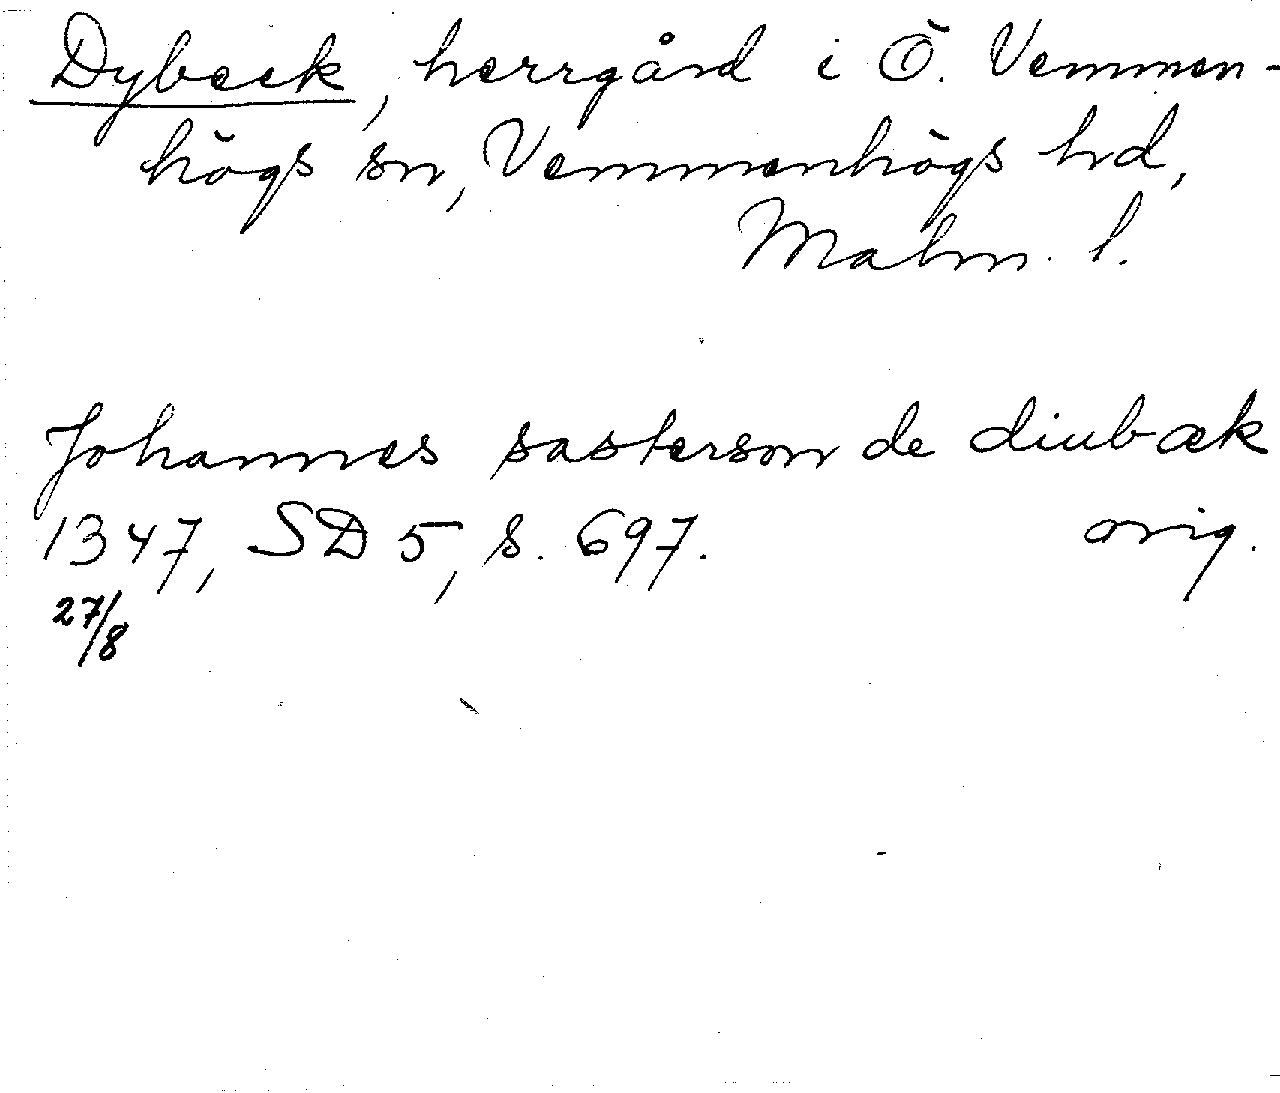 Dybeck, herrgård i Ö. Vemmen-
högs sn, Vemmenhögs hd,
Malm. l.
Johannes sasterson de diubæk
1347, SD 5, s. 697. orig.
27/8